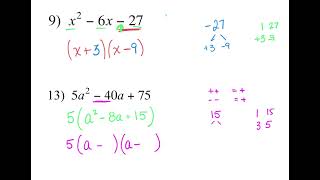 9) x² − 6x − 27
(x + 3)(x − 9)
−27
+3 −9
1 27
+3 9
13) 5a² − 40a + 75
5(a² − 8a + 15)
5(a −  )(a −  )
++ = +
-- = +
15
1 15
3 5